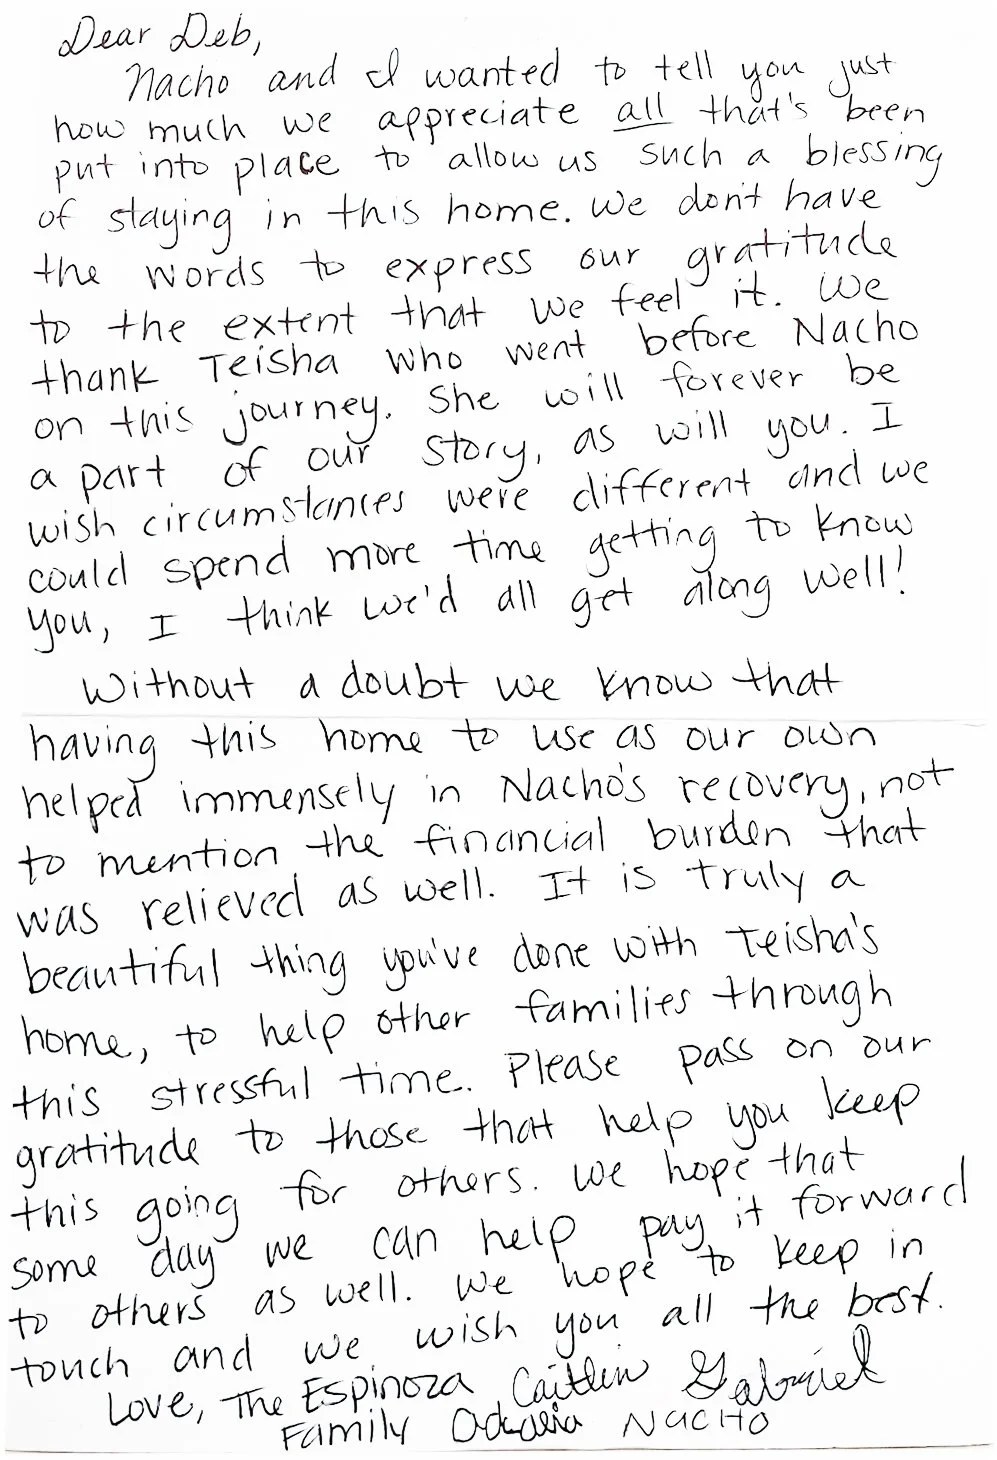 Dear Deb,
Nacho and I wanted to tell you just
how much we appreciate all that's been
put into place to allow us such a blessing
of staying in this home. We don't have
the words to express our gratitude
to the extent that we feel it. We
thank Teisha who went before Nacho
on this journey. She will forever be
a part of our story, as will you. I
wish circumstances were different and we
could spend more time getting to know
you, I think we'd all get along well!
Without a doubt we know that
having this home to use as our own
helped immensely in Nacho's recovery, not
to mention the financial burden that
was relieved as well. It is truly a
beautiful thing you've done with Teisha's
home, to help other families through
this stressful time. Please pass on our
gratitude to those that help you keep
this going for others. We hope that
some day we can help pay it forward
to others as well. We hope to keep in
touch and we wish you all the best.
Love, The Espinoza Caitlin Gabriel
Family NACHO